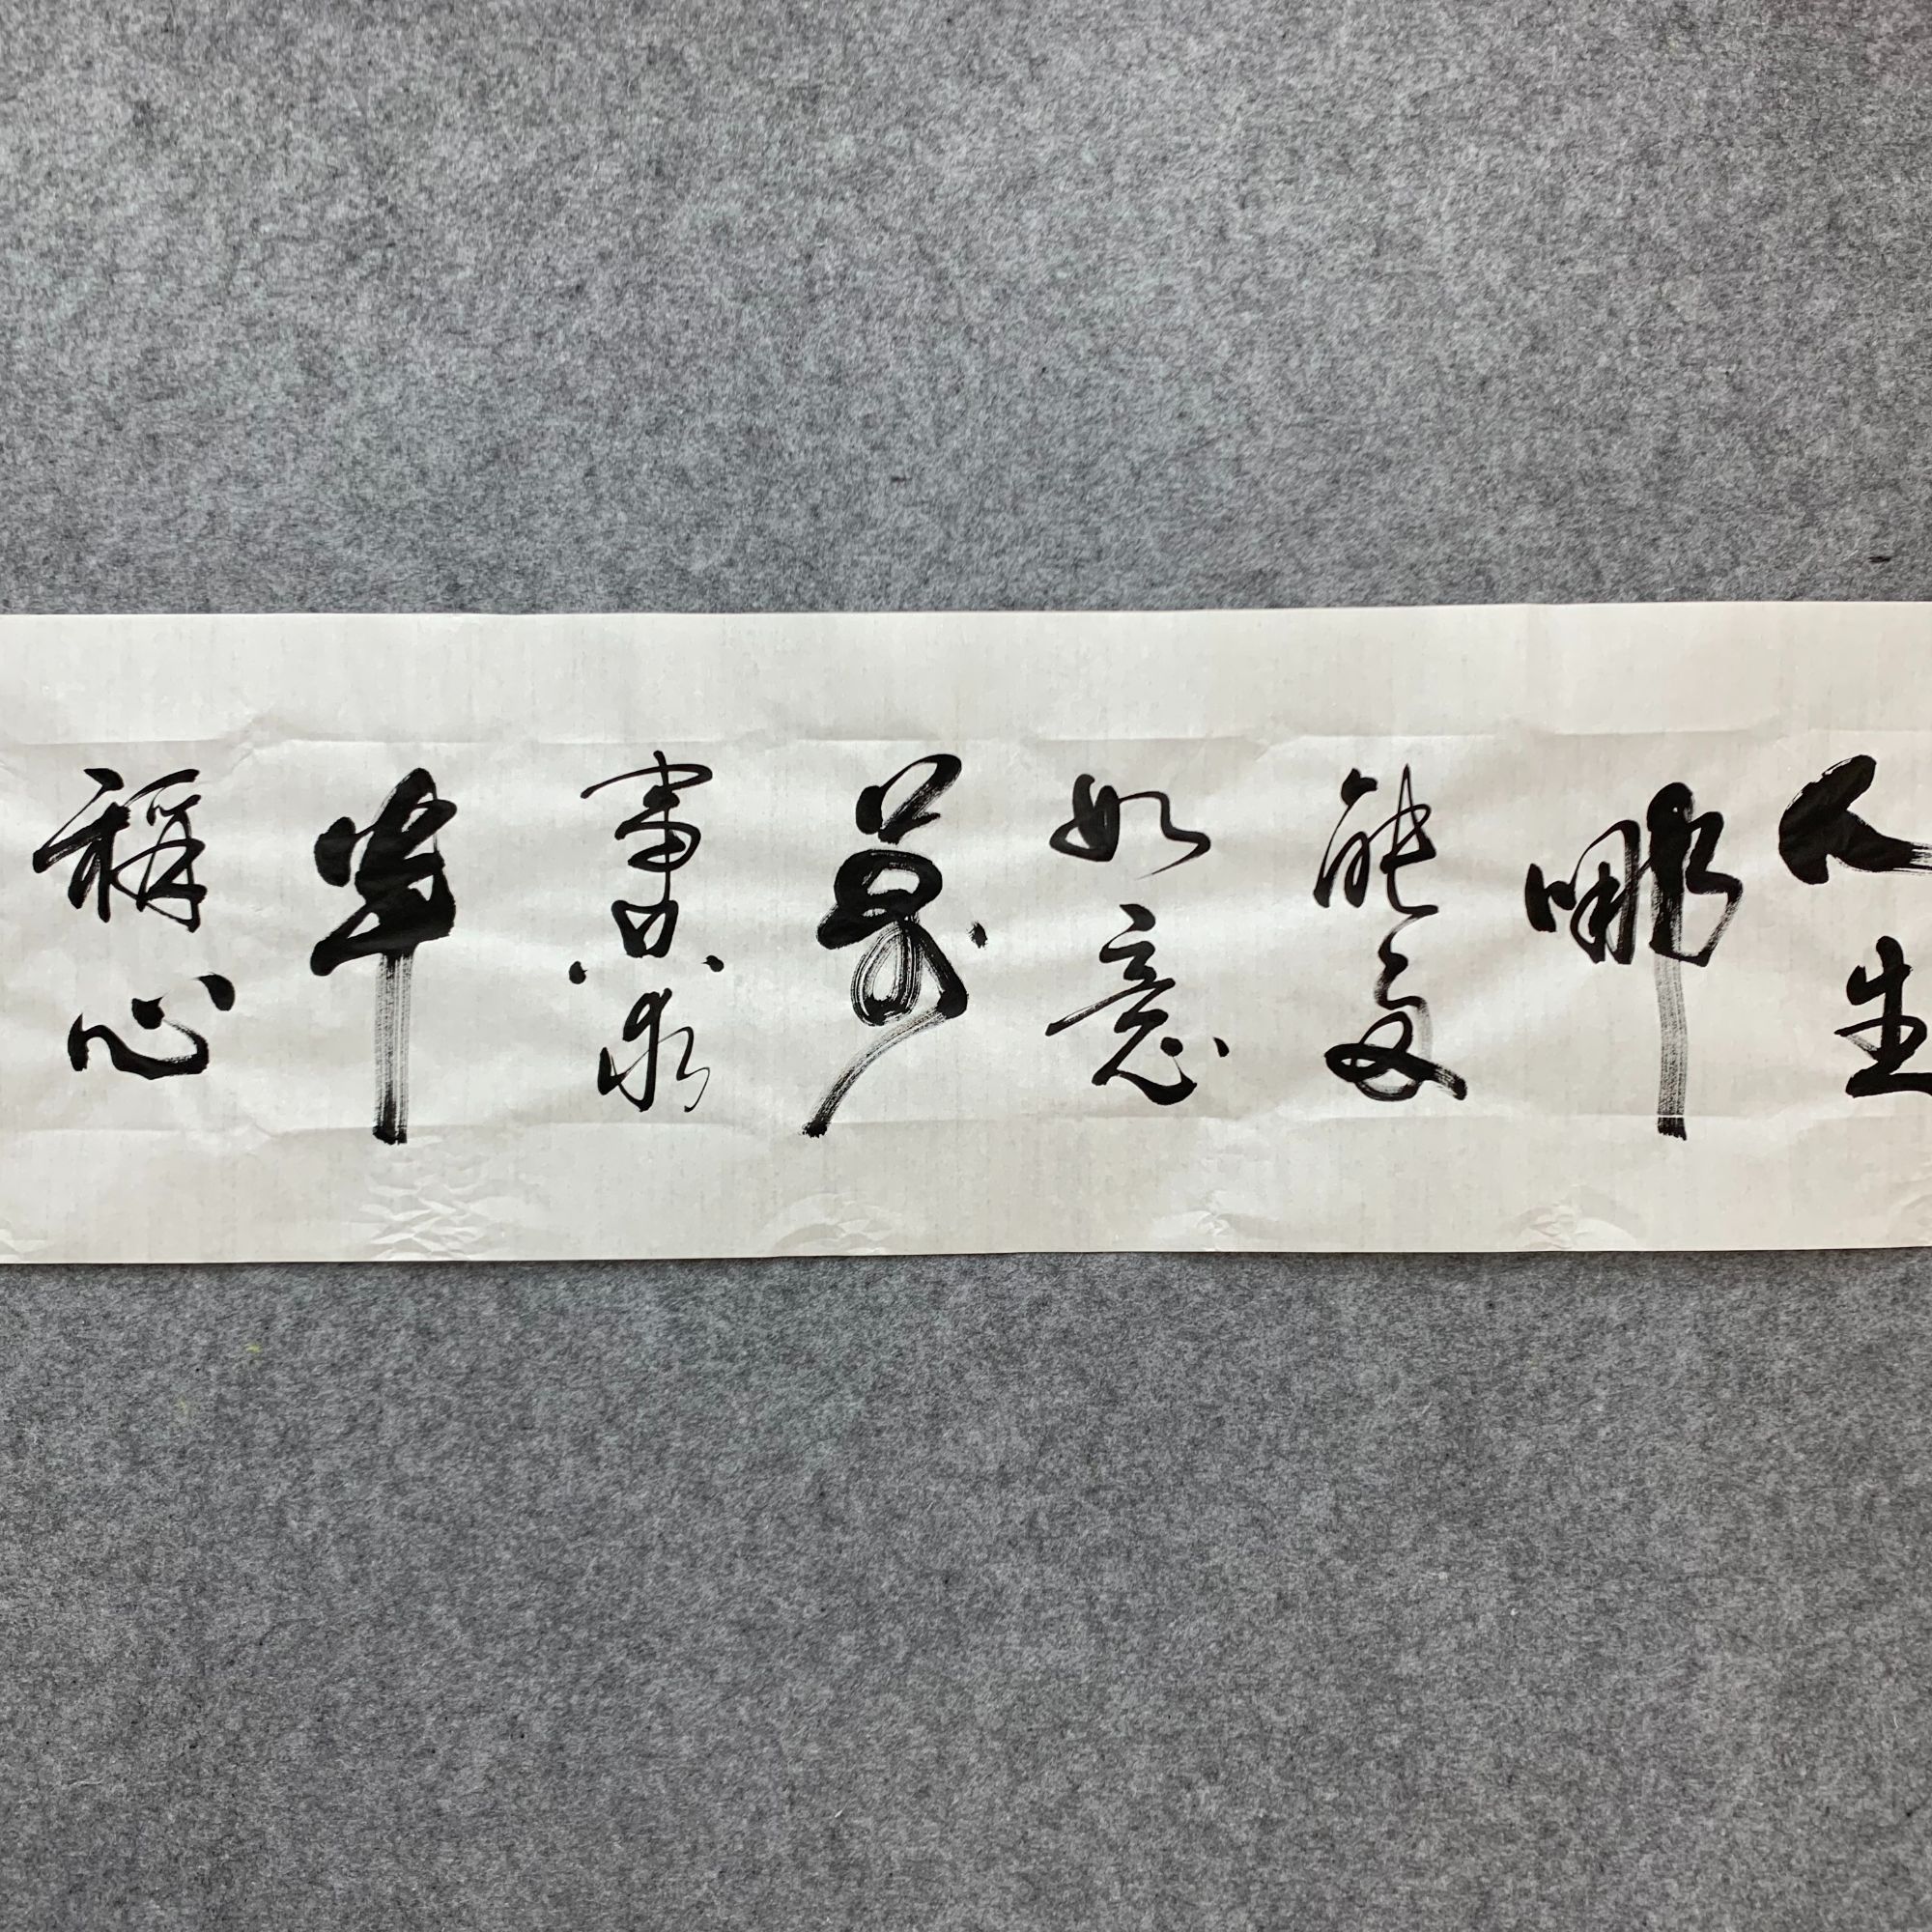 人生
哪
能多
如意
萬
事只求
半
稱心